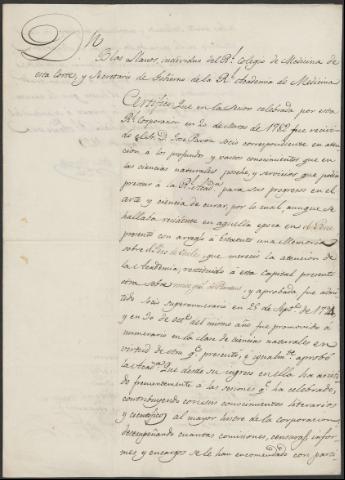 Dn
Blas Llanos, individuo del Rl. Colegio de Medicina de
esta Corte, y Secretario de Gobierno de la Rl. Academia de Medicina
Certifico: Que en la sesion celebrada por esta
Rl. Corporacion en 20 de Marzo de 1782 fue recivi-
do el Sr. D. Jose Pavon socio correspondiente en atencion
a los profundos y vastos conocimientos que en
las ciencias naturales posehe, y servicios que podia
prestar á la Rl. Acada. para sus progresos en el
arte y ciencia de curar, por lo cual, aunque se
hallaba residente en aquella epoca en
presentó con arreglo á Estatuto una Memoria
sobre que mereció la atencion de
la Academia, restituido á esta Capital presentó
otra sobre y aprobada fue admi-
tido Socio supernumerario en 25 de Septe. de 1794
y en 30 de octe. del mismo año fue promovido á
numerario en la clase de ciencias naturales en
virtud de otra qe. presentó, e igualmte. aprobó
la Acada. Que desde su ingreso en ella ha asisti-
do frecuentemente á las sesiones qe. ha celebrado,
contribuyendo con sus conocimientos literarios
y cientificos al mayor lustre de la corporacion,
desempeñando cuantas comisiones, censuras, infor-
mes y encargos se le han encomendado con parti